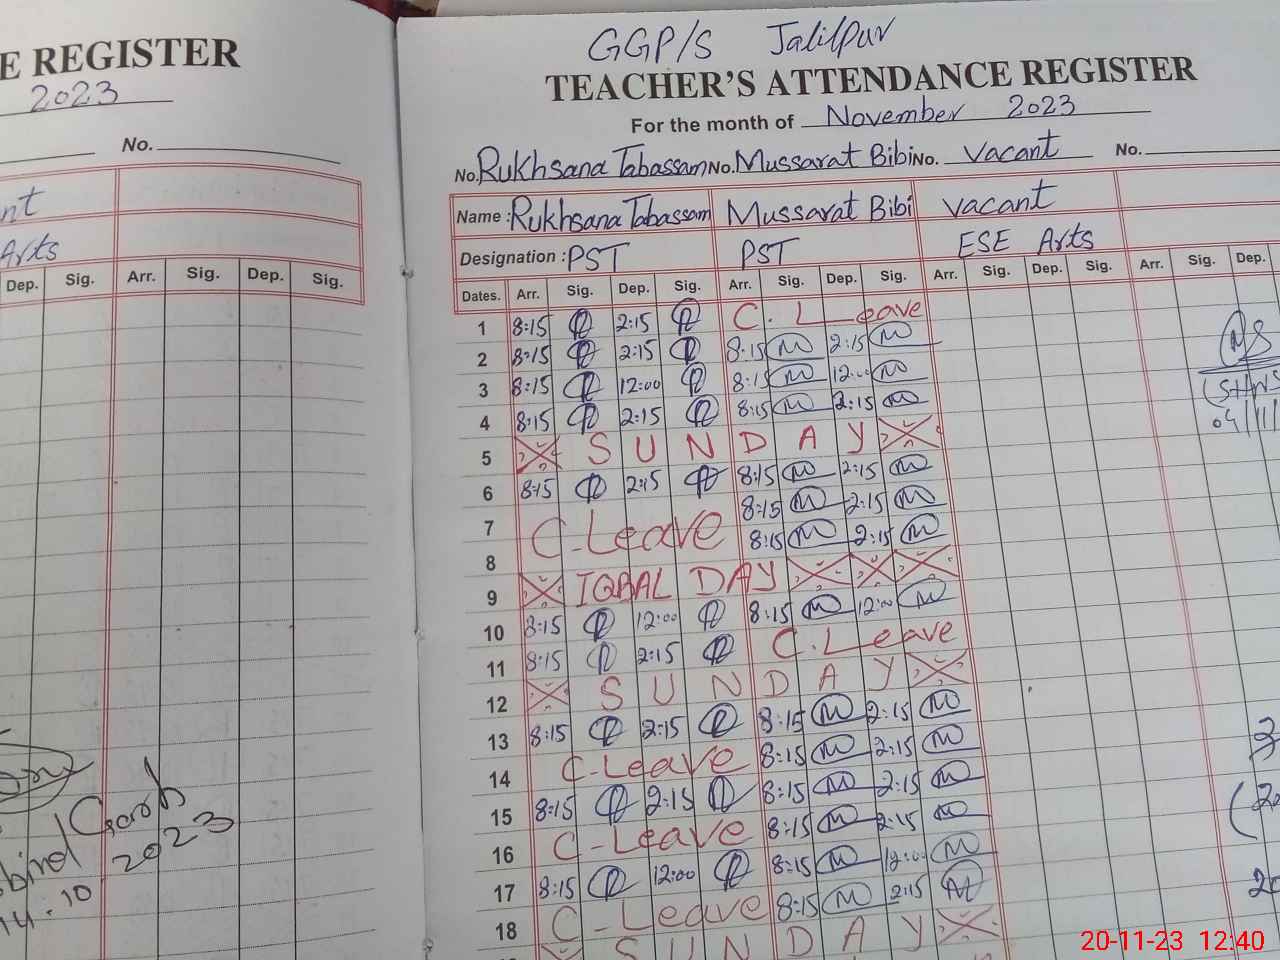 E REGISTER
2023
No.
nt
Arts
Dep. Sig. Arr. Sig. Dep. Sig.
2023
14.10
GGP/S Jalilpur
TEACHER'S ATTENDANCE REGISTER
For the month of November 2023
No. Rukhsana Tabassam No. Mussarat Bibi No. Vacant No.
Name : Rukhsana Tabassam Mussarat Bibi vacant
Designation : PST PST ESE Arts
Dates. Arr. Sig. Dep. Sig. Arr. Sig. Dep. Sig. Arr. Sig. Dep. Sig. Arr. Sig. Dep.
1 8:15 2:15 C. Leave
2 8:15 2:15 8:15 M 2:15 M
3 8:15 12:00 8:15 M 12:00 M
4 8:15 2:15 8:15 M 2:15 M
5 SUNDAY
6 8:15 2:15 8:15 M 2:15 M
7 C. Leave 8:15 M 2:15 M
8 8:15 M 2:15 M
9 IQBAL DAY
10 8:15 12:00 8:15 M 12:00 M
11 8:15 2:15 C. Leave
12 SUNDAY
13 8:15 2:15 8:15 M 2:15 M
14 C-Leave 8:15 M 2:15 M
15 8:15 2:15 8:15 M 2:15 M
16 C-Leave 8:15 M 2:15 M
17 8:15 12:00 8:15 M 12:00 M
18 C-Leave 8:15 M 2:15 M
SUNDAY
20-11-23 12:40